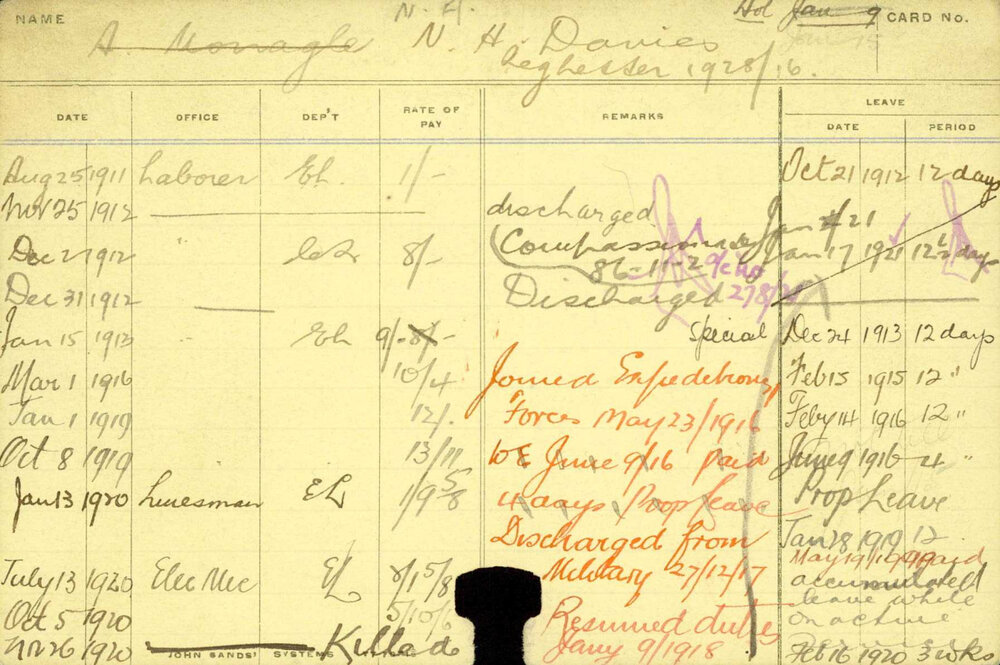 NAME
N. H.
Hol Jan 9
CARD No.
A. Monagle N. H. Davies
1928/16.
DATE OFFICE DEP'T RATE OF PAY REMARKS LEAVE
DATE PERIOD
Aug 25 1911 Laborer Eh. 1/- Oct 21 1912 12 days
Nov 25 1912 discharged Jan 21
Dec 2 1912 8/- Compassionate Jan 17 1921 days
86-11-2
278/21
Dec 31 1912 Discharged
Jan 15 1913 Eh 9/- 8/- Special Dec 24 1913 12 days
Mar 1 1916 10/4 Joined Expeditionary Feb 15 1915 12 "
Jan 1 1919 12/- Forces May 23/1916 Feby 14 1916 12 "
Oct 8 1919 13/11 WE June 9/16 Paid June 9 1916 4 "
Jan 13 1920 Linesman EL 1/9 5/8 4 days Prop leave Prop Leave
Discharged from Jan 28 1919 12
July 13 1920 Elec Mec EL 5/8 Military 27/12/17 May 19 1919 Paid
accumulated
Oct 5 1920 5/10/6 Resumed duties leave while
on active
Nov 26 1920 Killed Jany 9/1918 Feb 16 1920 3 wks
JOHN SANDS' SYSTEMS